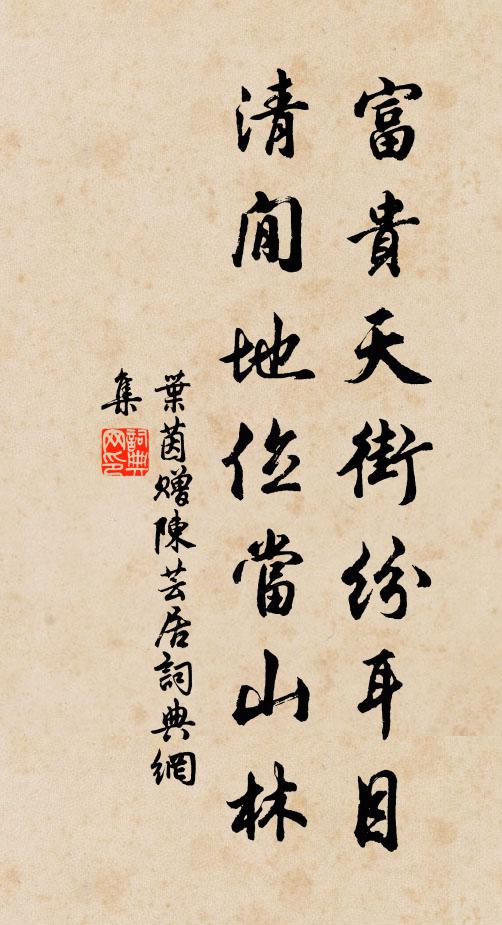 富貴天街紛耳目
清閒地位當山林
葉茵贈陳芸居詞典網
集
詞典
网印